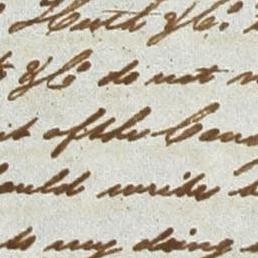 Heath & Co.
& Co do not
of the Cou
ould write
my doing